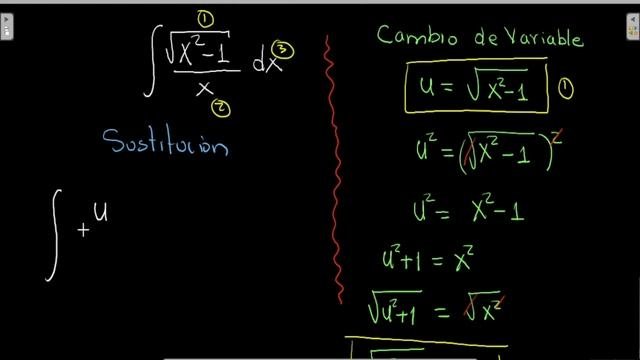 ∫ √(x²-1) / x dx ① ② ③
Sustitución
∫ u
Cambio de Variable
u = √(x²-1) ①
u² = (√(x²-1))²
u² = x²-1
u²+1 = x²
√(u²+1) = √x²